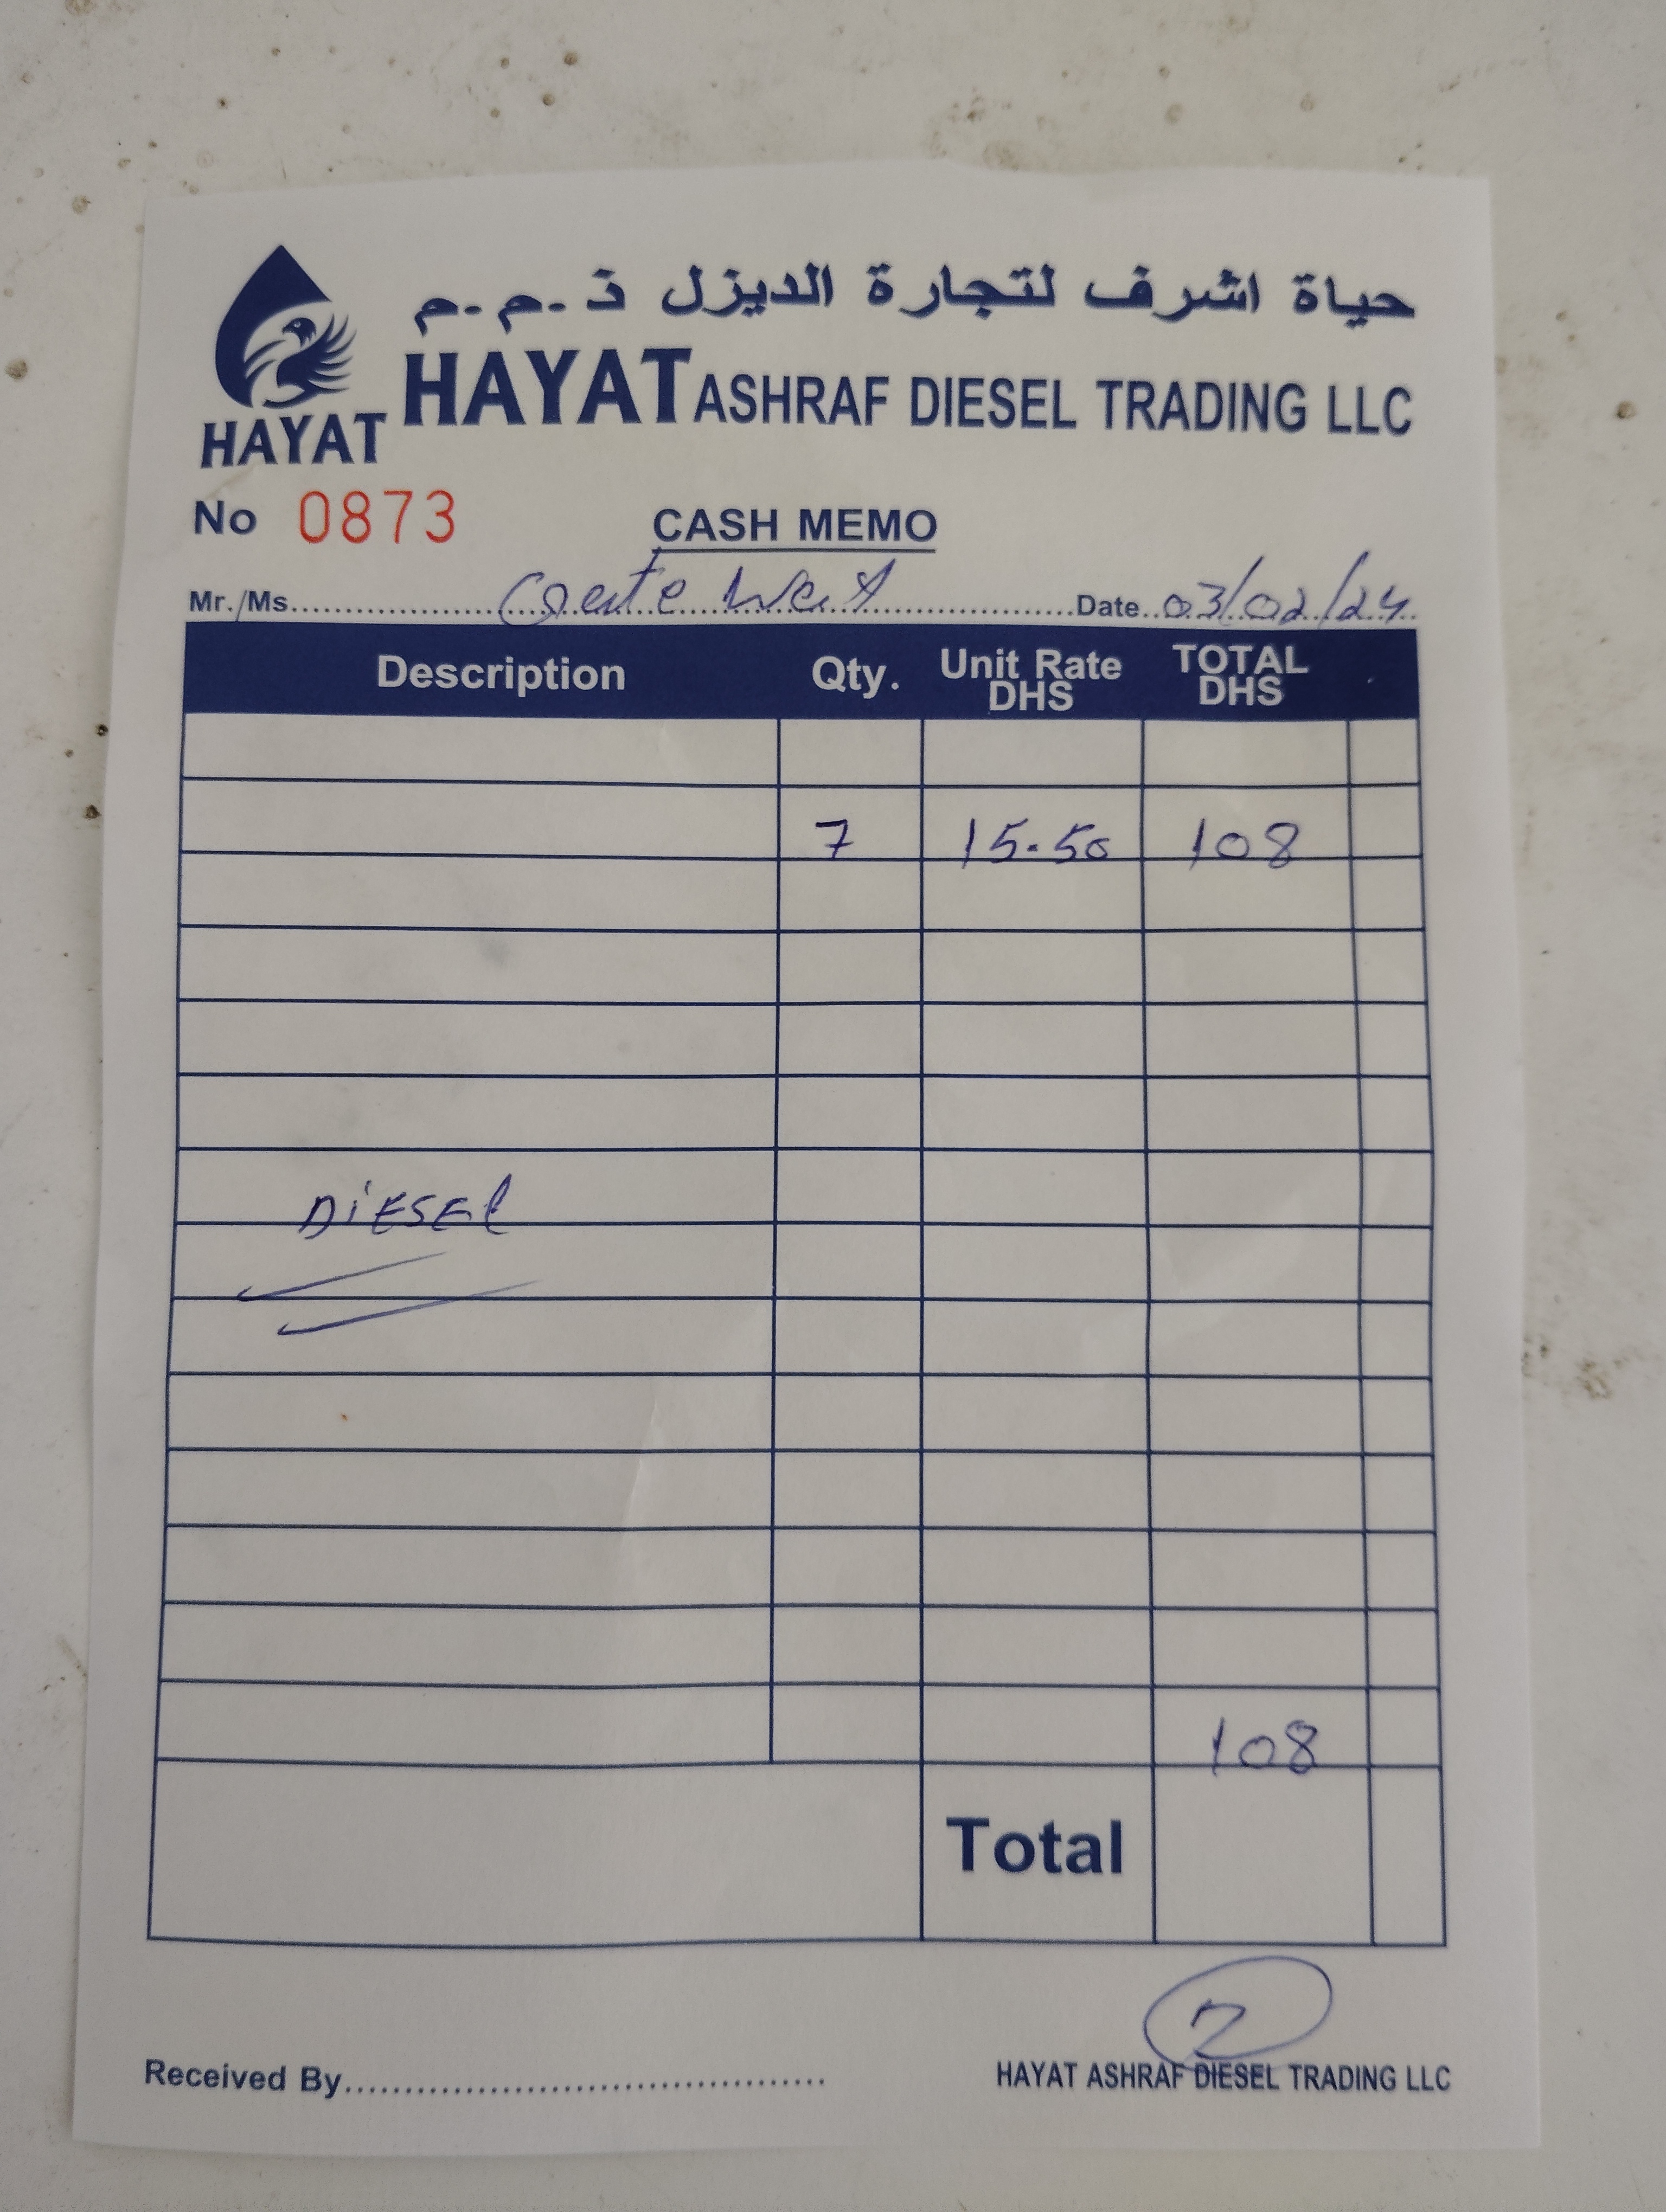 حياة اشرف لتجارة الديزل ذ.م.م.
HAYAT ASHRAF DIESEL TRADING LLC
HAYAT
No 0873
CASH MEMO
Mr./Ms. Date 03/02/24
Description Qty. Unit Rate DHS TOTAL DHS
7 15.50 108
DiESEL
108
Total
Received By
HAYAT ASHRAF DIESEL TRADING LLC